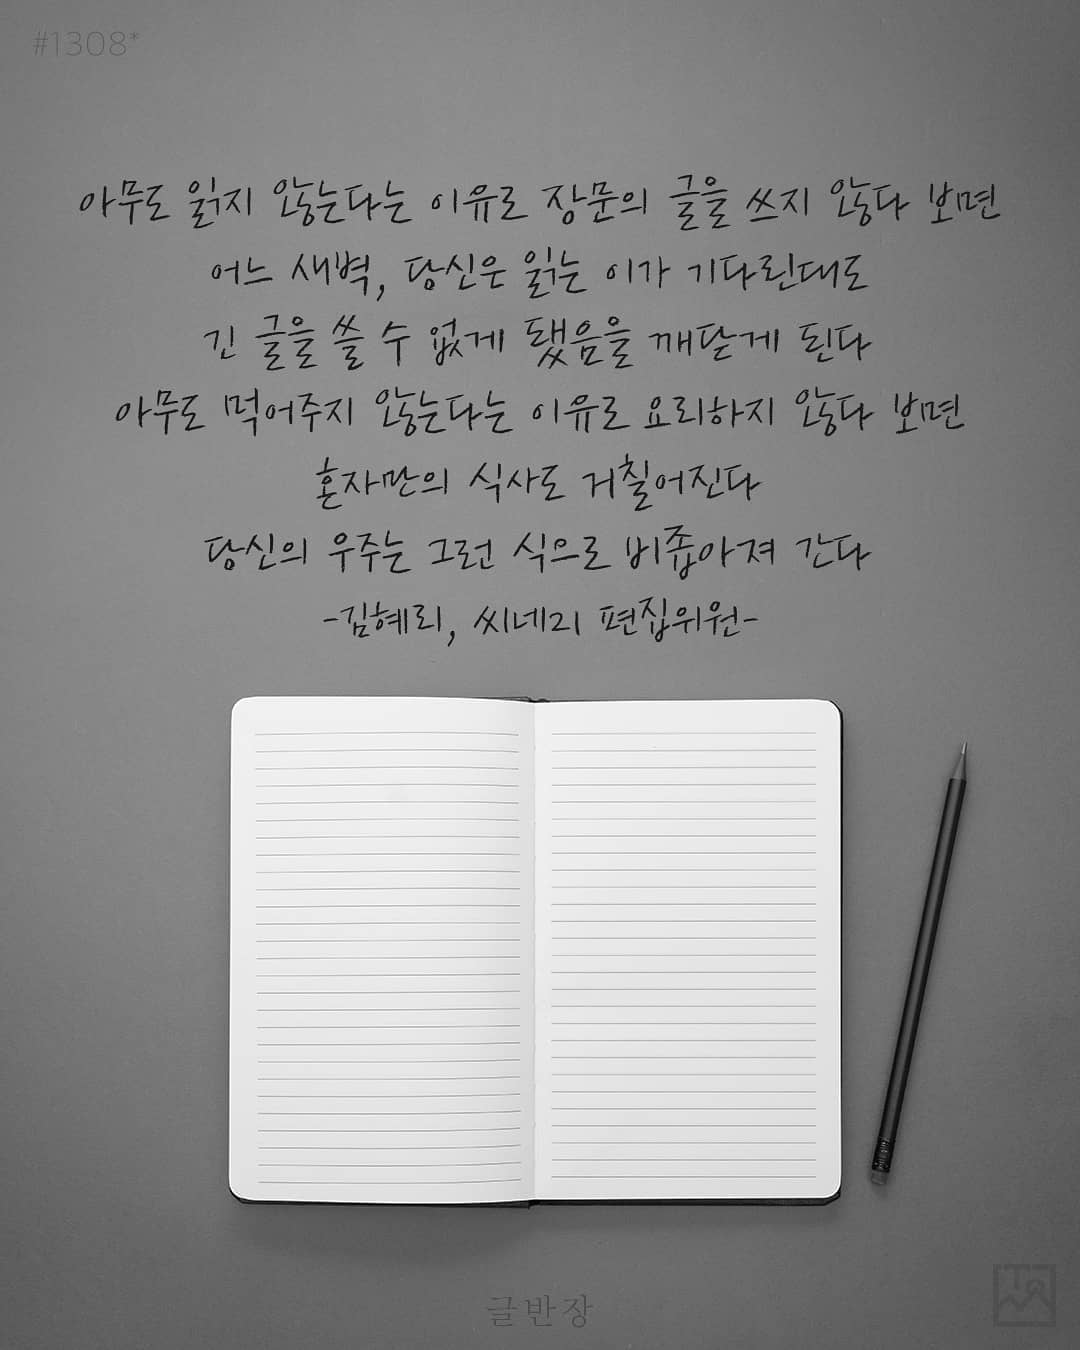 #1308*
아무도 읽지 않는다는 이유로 장문의 글을 쓰지 않다 보면
어느 새벽, 당신은 읽는 이가 기다린대도
긴 글을 쓸 수 없게 됐음을 깨닫게 된다
아무도 먹어주지 않는다는 이유로 요리하지 않다 보면
혼자만의 식사도 거칠어진다
당신의 우주는 그런 식으로 비좁아져 간다
-김혜리, 씨네21 편집위원-
글반장